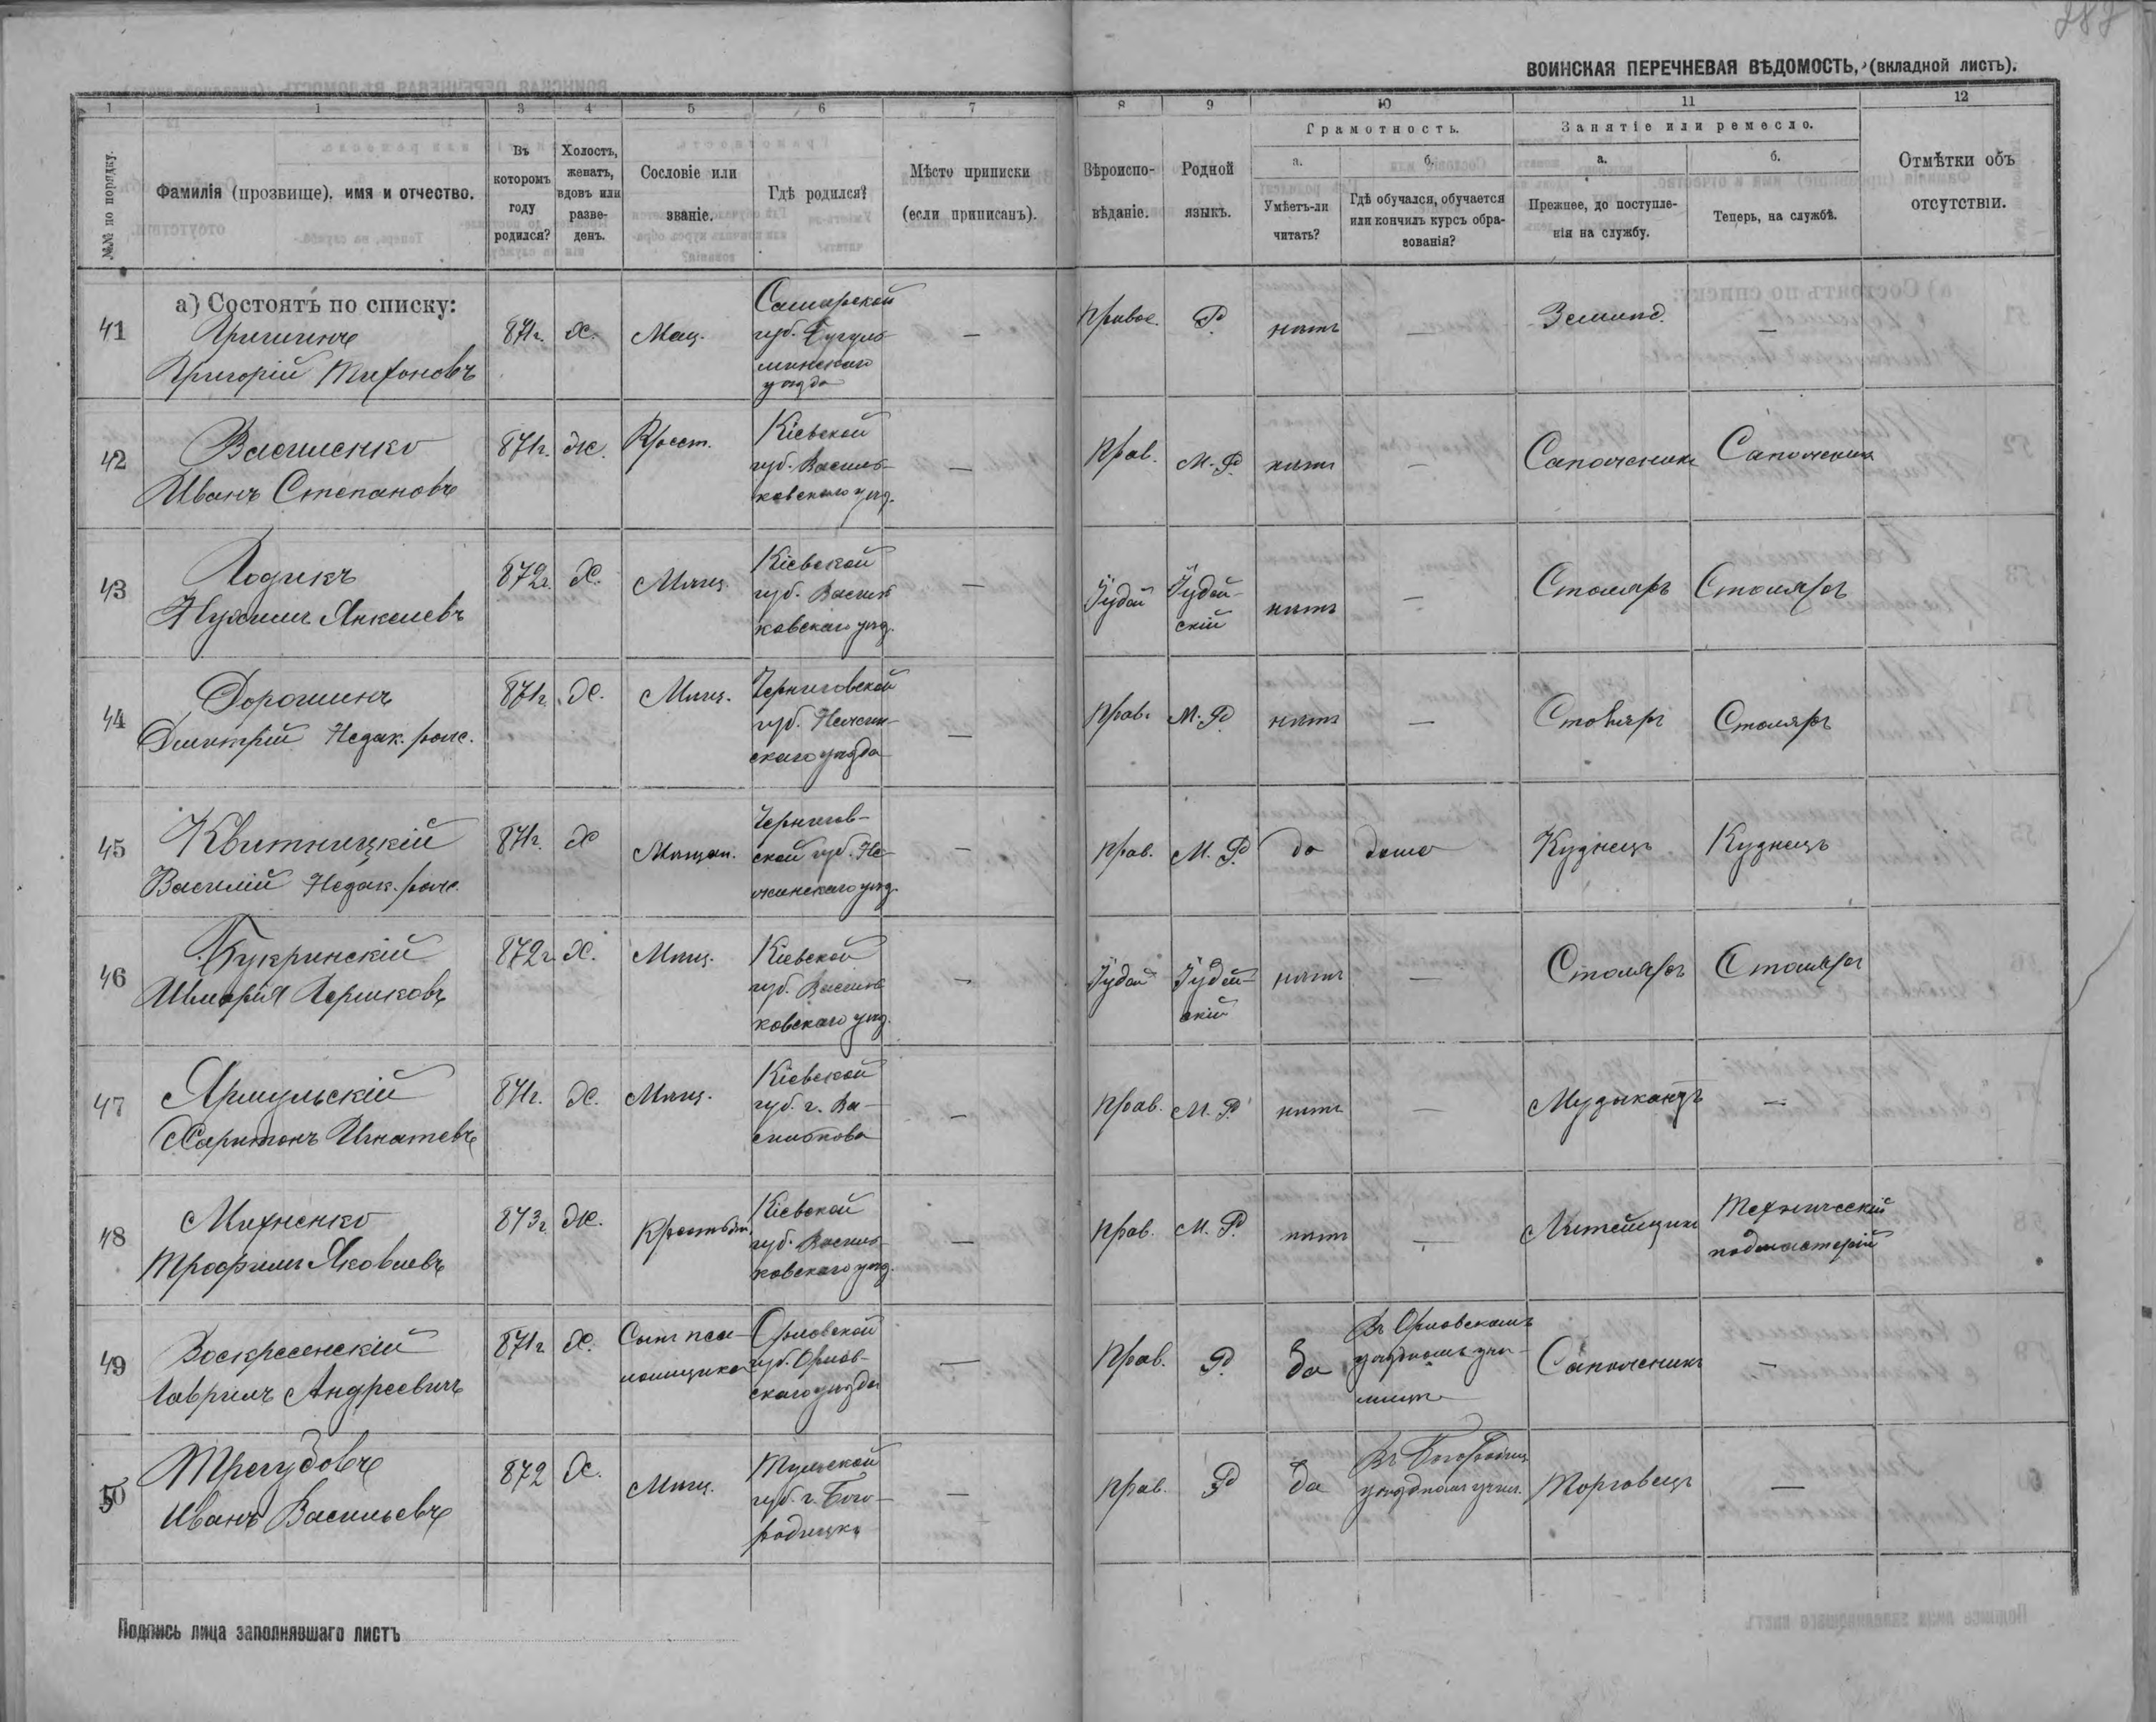 287
ВОИНСКАЯ ПЕРЕЧНЕВАЯ ВѢДОМОСТЬ, (вкладной листъ).
1 1 3 4 5 6 7 8 9 10 11 12
№№ по порядку.
Фамилія (прозвище), имя и отчество.
Въ которомъ году родился?
Холостъ, женатъ, вдовъ или разве-денъ.
Сословіе или званіе.
Гдѣ родился?
Мѣсто приписки (если приписанъ).
Вѣроиспо-вѣданіе.
Родной языкъ.
Грамотность.
а. Умѣетъ-ли читать?
б. Гдѣ обучался, обучается или кончилъ курсъ обра-зованія?
Занятіе или ремесло.
а. Прежнее, до поступле-нія на службу.
б. Теперь, на службѣ.
Отмѣтки объ отсутствіи.
а) Состоятъ по списку:
41 Григорій Тихоновъ 871г. Х. Мѣщ. Самарской губ. Бугуль-минскаго уѣзда — Правос. Р. нѣтъ — —
42 Василенко Иванъ Степановъ 871г. Ж. Крест. Кіевской губ. Василь-ковскаго уѣзд. — Прав. М. Р. нѣтъ — Сапожникъ Сапожникъ
43 Нухимъ Янкелевъ 872г. Х. Мѣщ. Кіевской губ. Василь-ковскаго уѣзд. — Іудей Іудей-скій нѣтъ — Столяръ Столяръ
44 Дорошинъ Дмитрій Незак. рож. 871г. Х. Мѣщ. Черниговской губ. Нежин-скаго уѣзда — Прав. М. Р. нѣтъ — Столяръ Столяръ
45 Квитницкій Василій Незак. рож. 871г. Х Мѣщан. Чернигов-ской губ. Не-жинскаго уѣзд. — Прав. М. Р. да дома Кузнецъ Кузнецъ
46 Букринскій Шмерка Гершковъ 872г. Х. Мѣщ. Кіевской губ. Василь-ковскаго уѣзд. — Іудей Іудей-скій нѣтъ — Столяръ Столяръ
47 Ярмульскій Харитонъ Игнатевъ 871г. Х. Мѣщ. Кіевской губ. г. Ва-силькова — Прав. М. Р. нѣтъ — Музыкантъ —
48 Михненко Трофимъ Яковлевъ 873г. Ж. Кіевской губ. Василь-ковскаго уѣзд. — Прав. М. Р. нѣтъ — Литейщикъ Техническій подмастерій
49 Воскресенскій Гаврилъ Андреевичъ 871г. Х. Сынъ псаломщика Орловской губ. Орлов-скаго уѣзда — Прав. Р. Да Въ Орловскомъ уѣздномъ учи-лищѣ Сапожникъ —
50 Трегубовъ Иванъ Васильевъ 872 Х. Мѣщ. Тульской губ. г. Бого-родицкъ — Прав. Р Да Въ Богородиц. уѣздномъ учил. Торговецъ —
Подпись лица заполнявшаго листъ